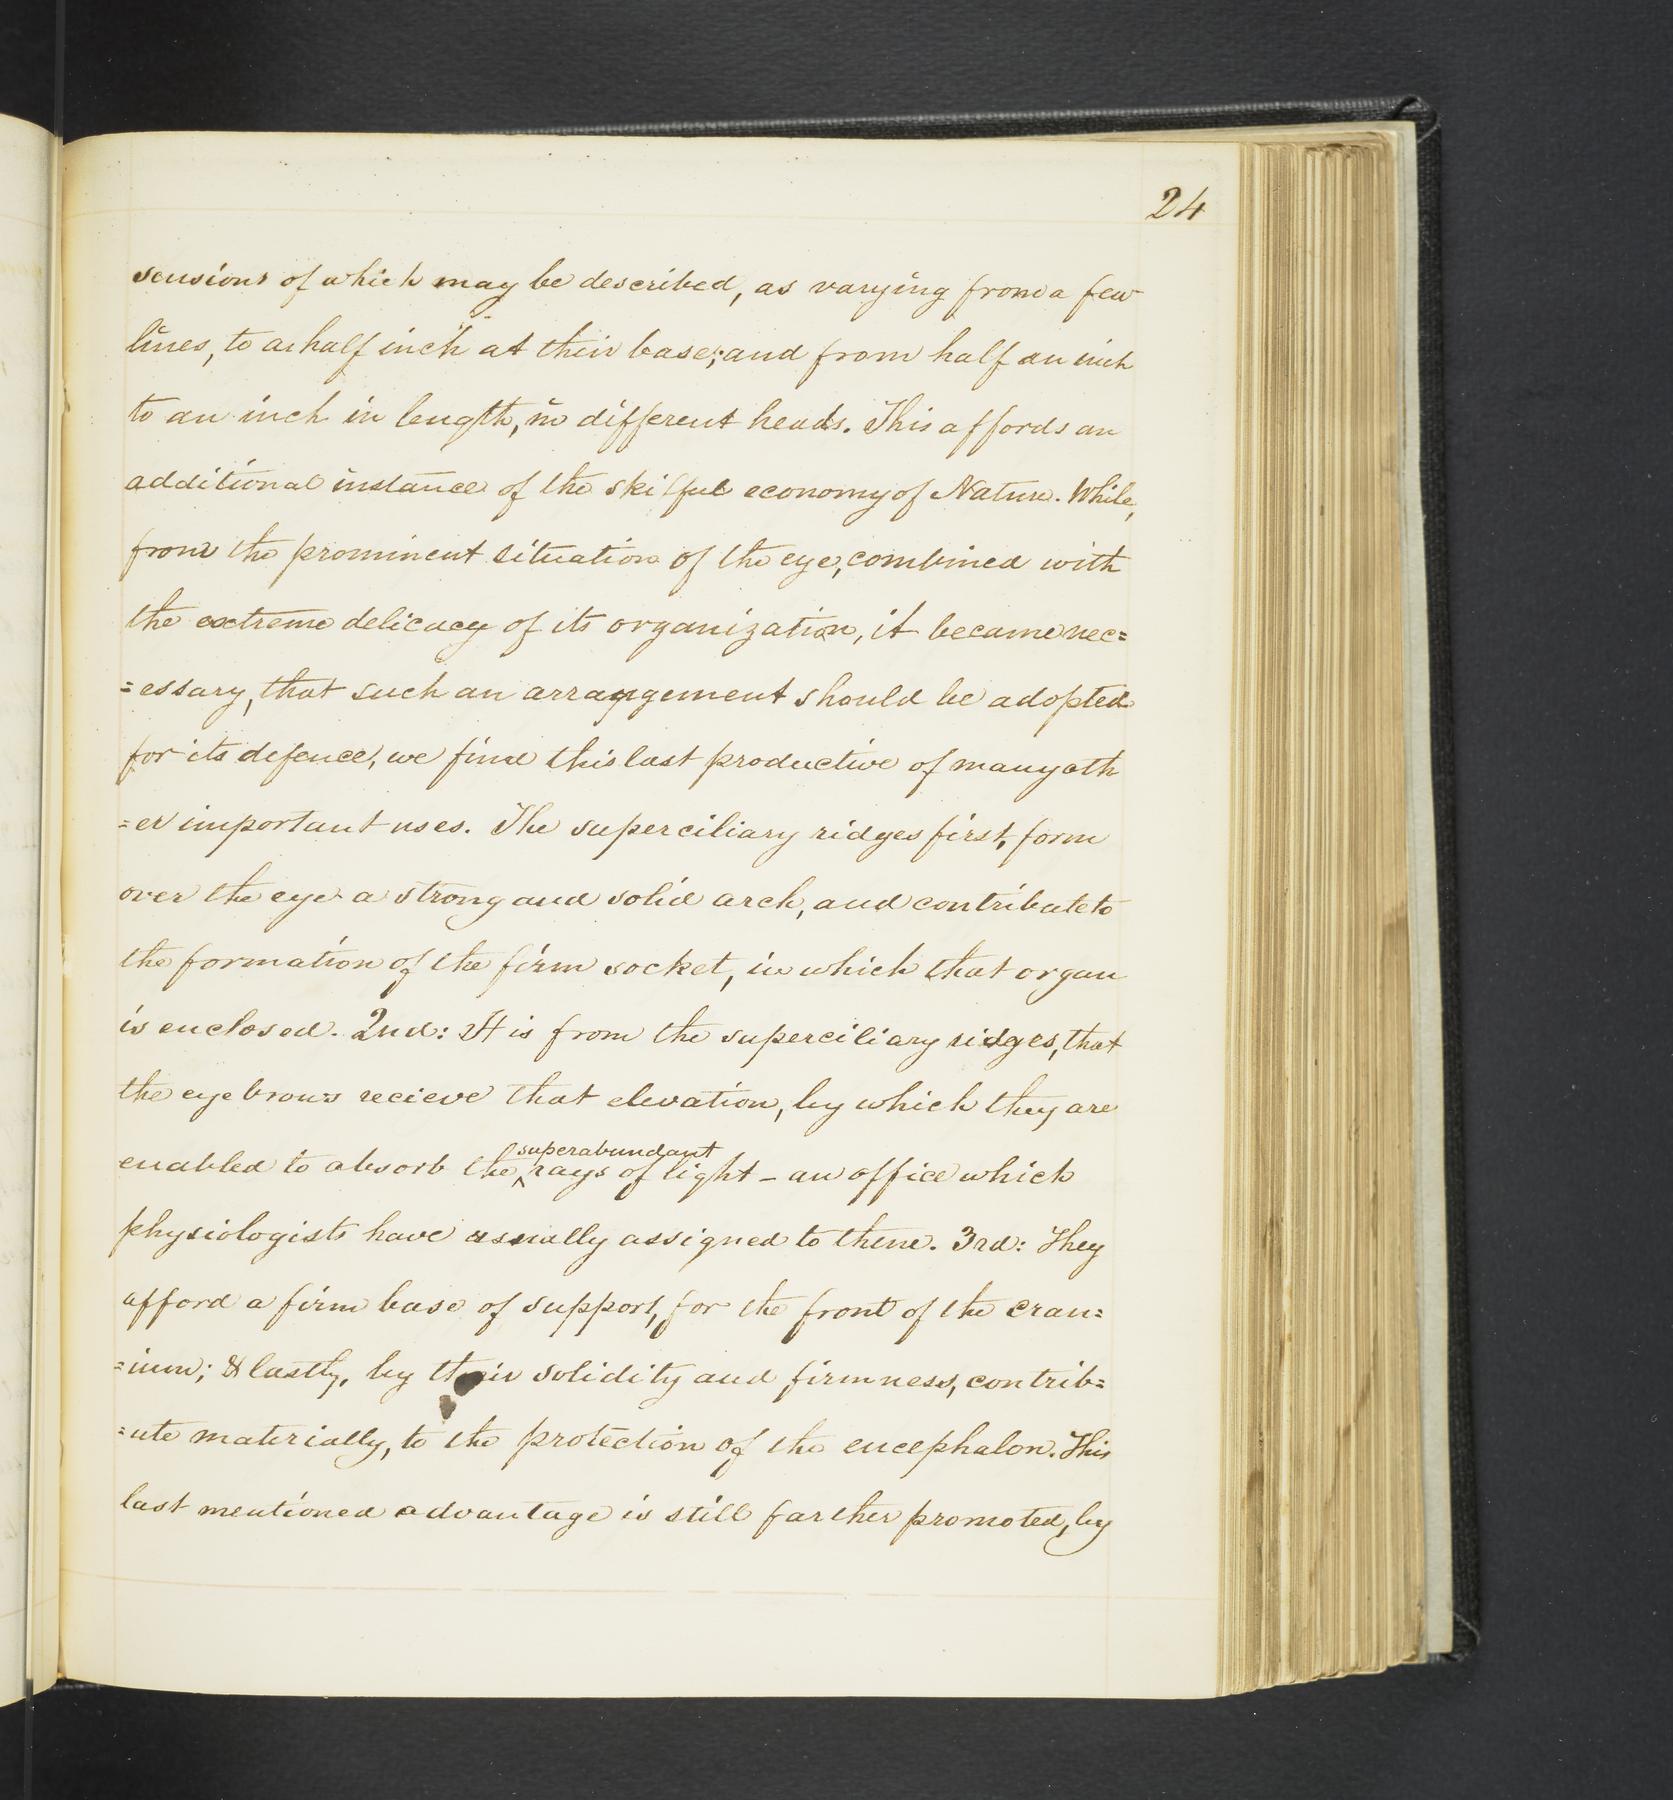 24
sensions of which may be described, as varying from a few
lines, to a half inch at their base; and from half an inch
to an inch in length, in different heads. This affords an
additional instance of the skilful economy of Nature. While,
from the prominent situation of the eye, combined with
the extreme delicacy of its organization, it became nec=
=essary, that such an arrangement should be adopted
for its defence, we find this last productive of many oth
=er important uses. The superciliary ridges first, form
over the eye a strong and solid arch, and contribute to
the formation of the firm socket, in which that organ
is enclosed. 2nd: It is from the superciliary ridges, that
the eyebrows recieve that elevation, by which they are
enabled to absorb the superabundant rays of light – an office which
physiologists have usually assigned to them. 3rd: They
afford a firm base of support, for the front of the cran=
=ium; & lastly, by their solidity and firmness, contrib=
=ute materially, to the protection of the encephalon. This
last mentioned advantage is still farther promoted, by